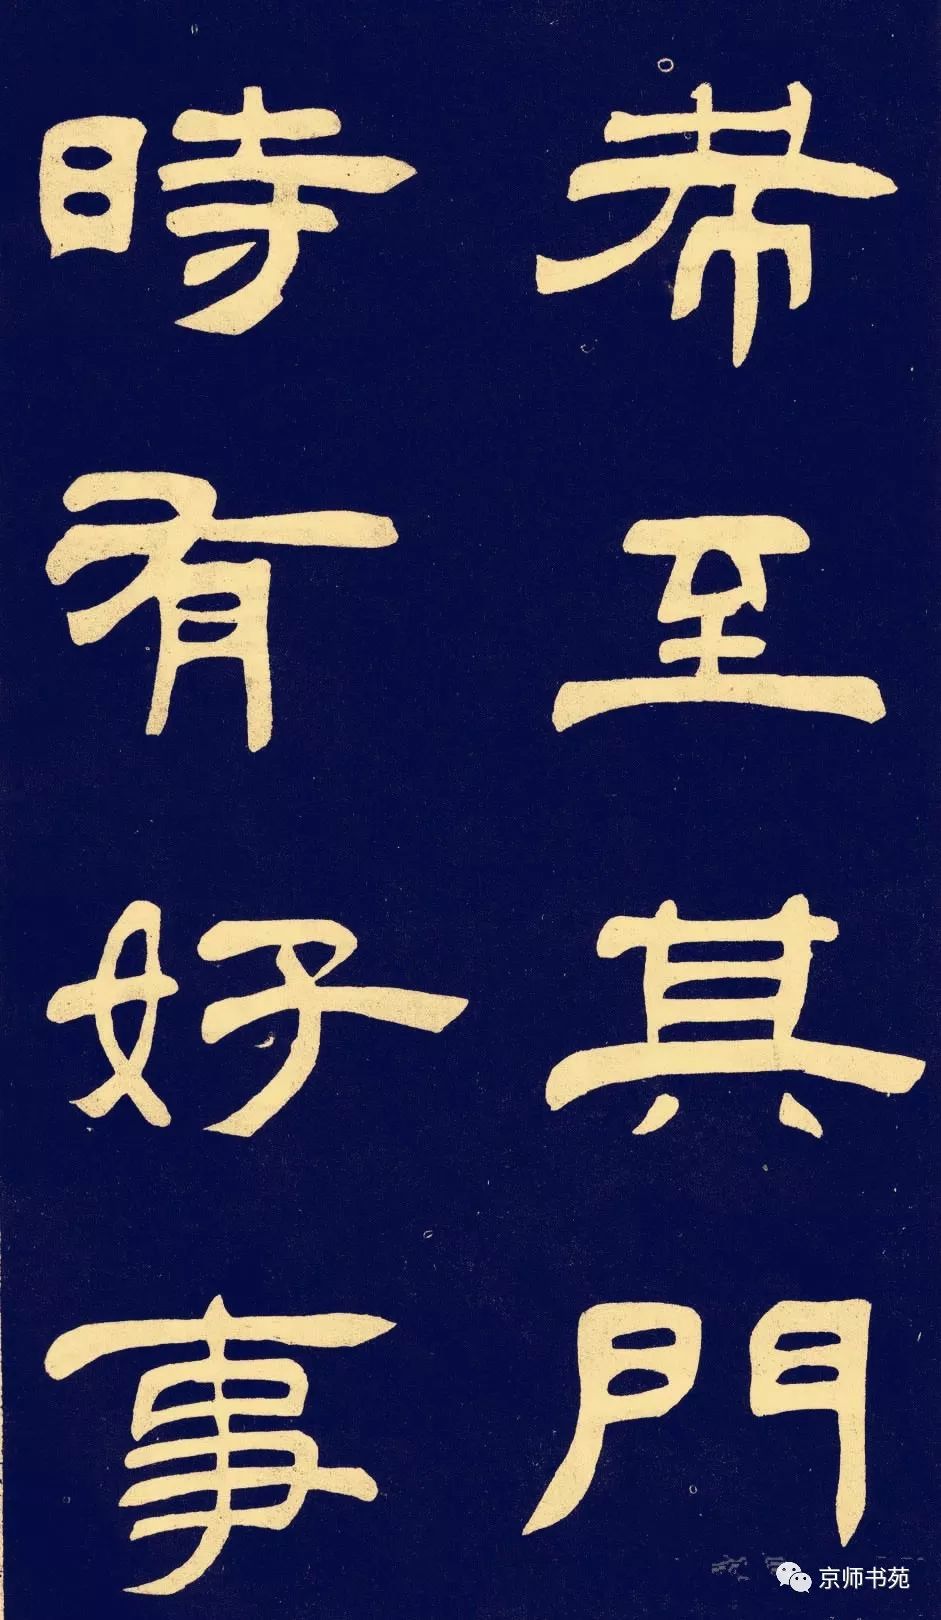 希至其門
時有好事
京师书苑